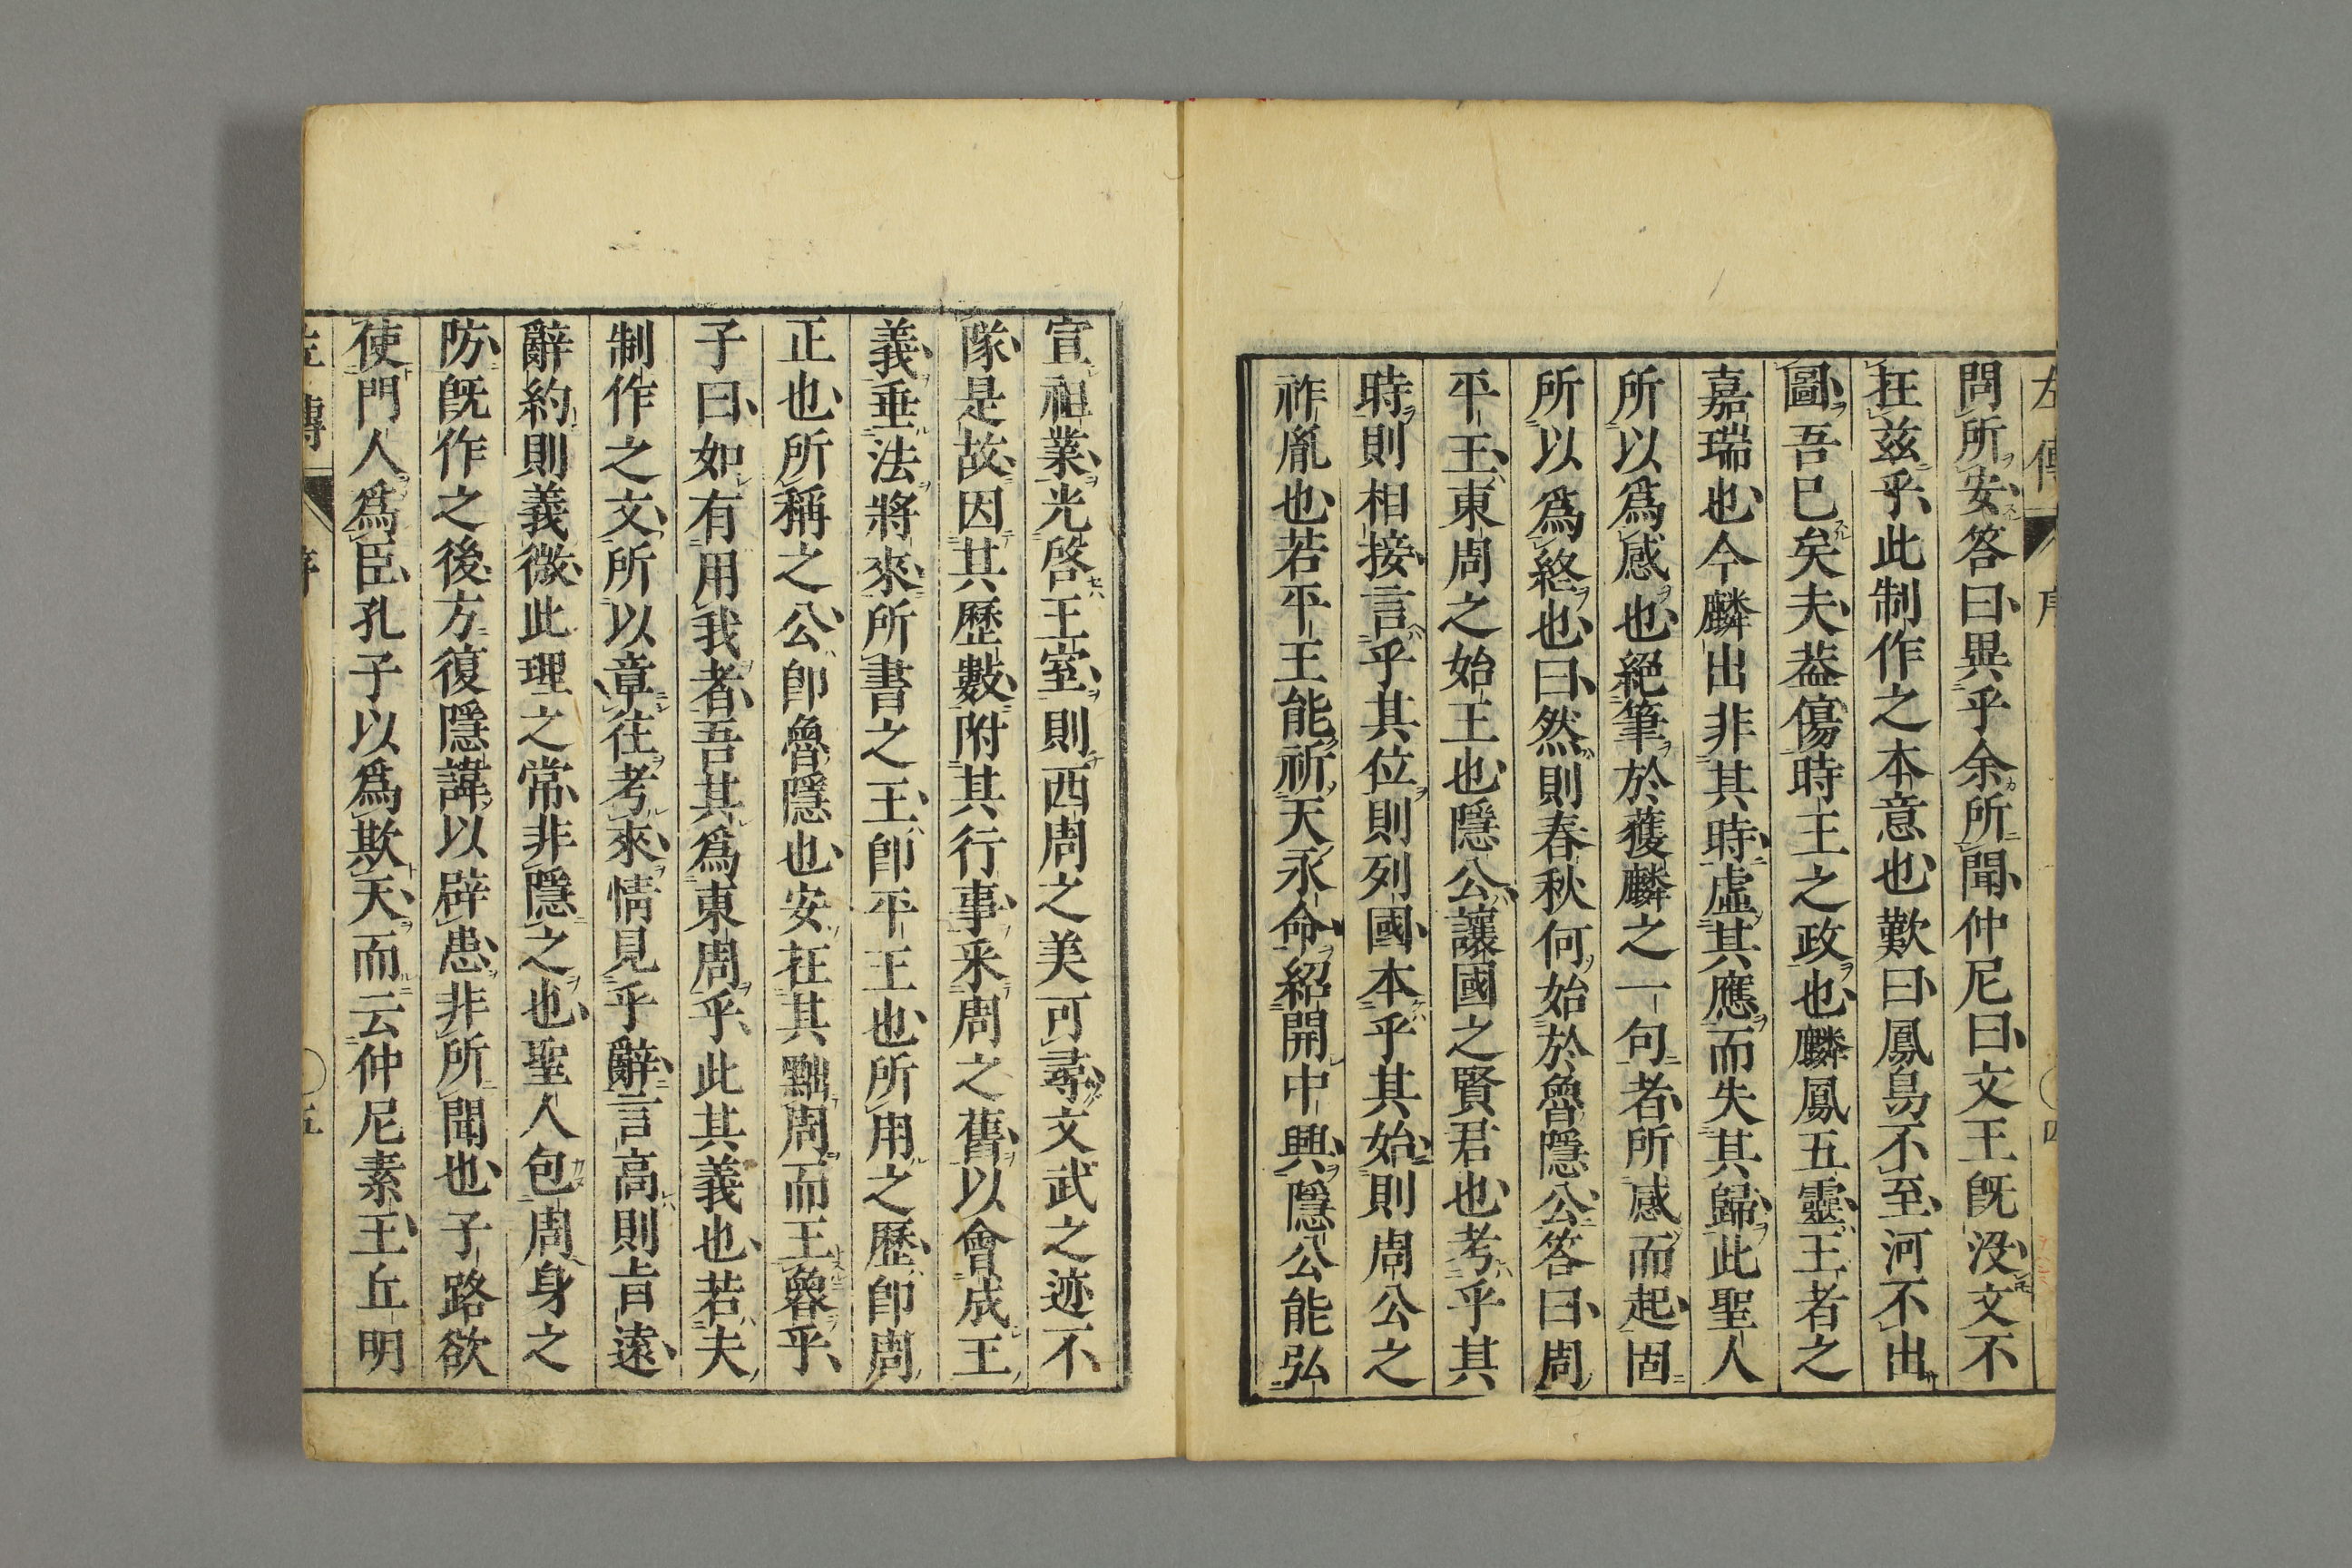 左傳 序 四
問所安答曰異乎余所聞仲尼曰文王旣没文不
在茲乎此制作之本意也歎曰鳳鳥不至河不出
圖吾已矣夫葢傷時王之政也麟鳳五靈王者之
嘉瑞也今麟出非其時虛其應而失其歸此聖人
所以爲感也絕筆於獲麟之一句者所感而起固
所以爲終也曰然則春秋何始於魯隱公答曰周
平王東周之始王也隱公讓國之賢君也考乎其
時則相接言乎其位則列國本乎其始則周公之
祚胤也若平王能祈天永命紹開中興隱公能弘
宣祖業光啓王室則西周之美可尋文武之迹不
隊是故因其歷數附其行事采周之舊以會成王
義垂法將來所書之王卽平王也所用之歷卽周
正也所稱之公卽魯隱也安在其黜周而王魯乎
子曰如有用我者吾其爲東周乎此其義也若夫
制作之文所以章往考來情見乎辭言高則旨遠
辭約則義微此理之常非隱之也聖人包周身之
防旣作之後方復隱諱以辟患非所聞也子路欲
使門人爲臣孔子以爲欺天而云仲尼素王丘明
左傳 序 五